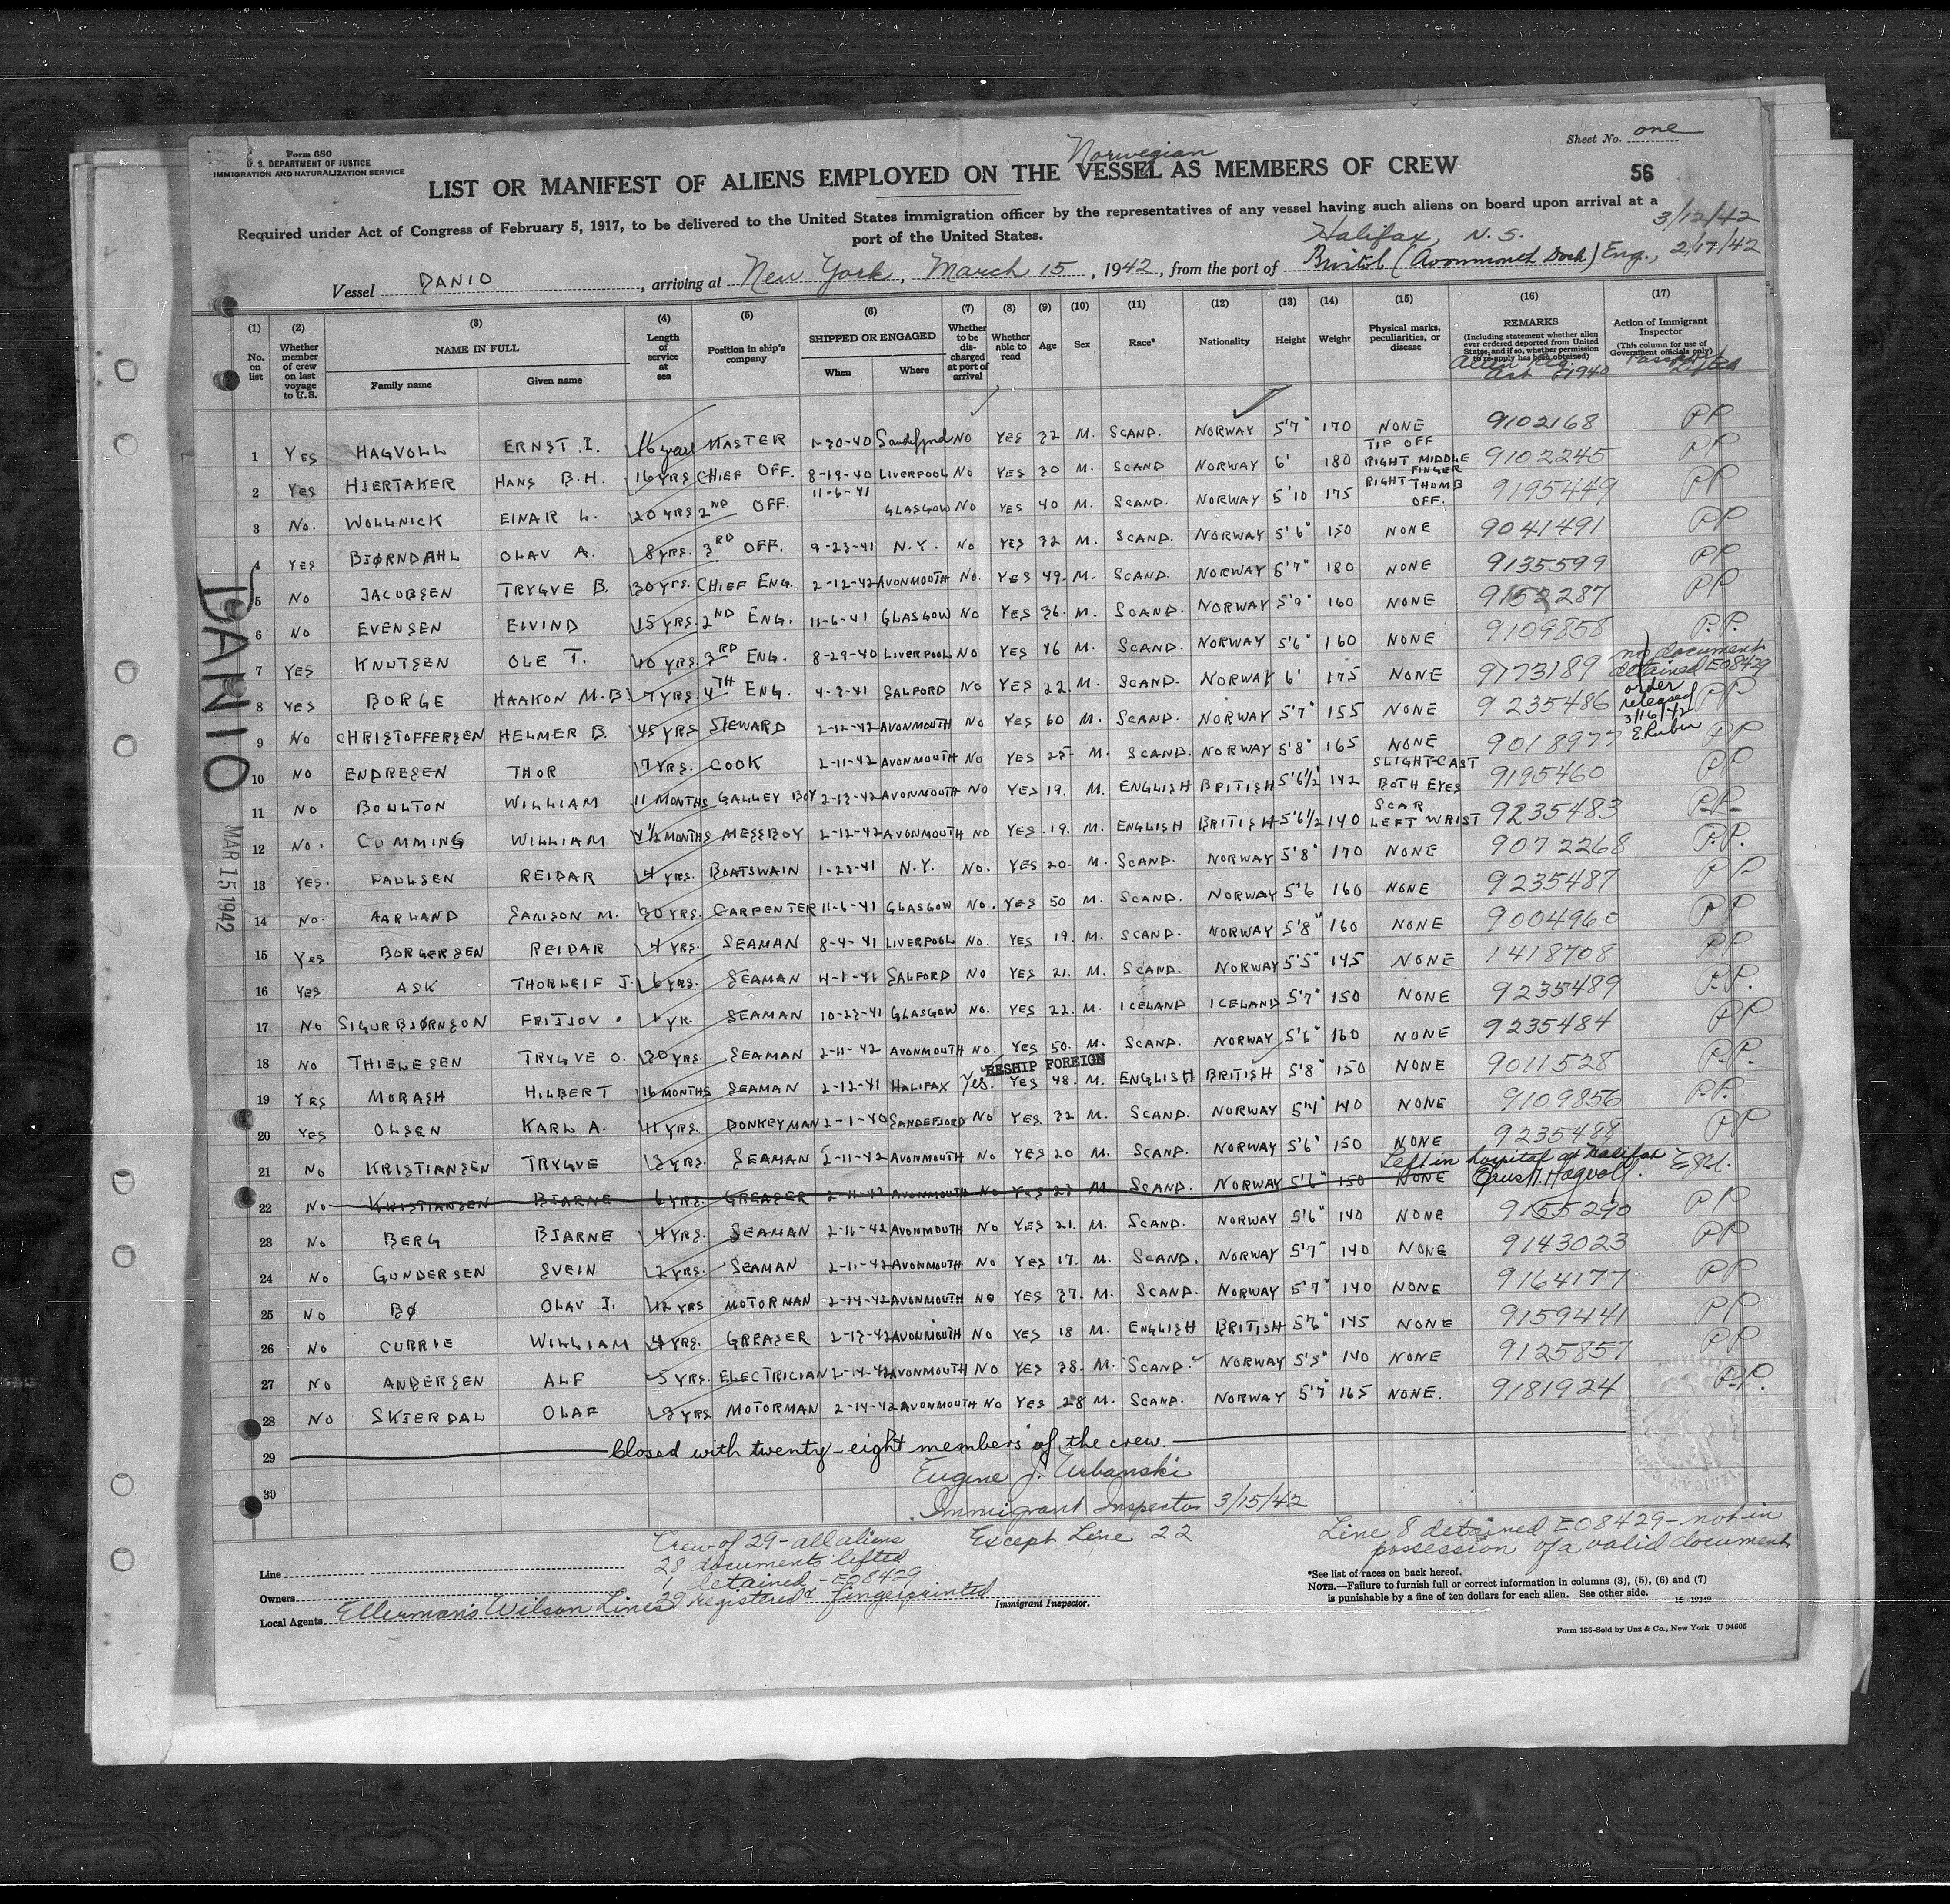 Form 680
U. S. DEPARTMENT OF JUSTICE
IMMIGRATION AND NATURALIZATION SERVICE
Sheet No. one
Norwegian
LIST OR MANIFEST OF ALIENS EMPLOYED ON THE VESSEL AS MEMBERS OF CREW
56
Required under Act of Congress of February 5, 1917, to be delivered to the United States immigration officer by the representatives of any vessel having such aliens on board upon arrival at a
port of the United States.
Halifax, N. S. 3/12/42
Vessel DANIO, arriving at New York, March 15, 1942, from the port of Bristol (Avonmouth Dock) Eng., 2/17/42
(1) (2) (3) (4) (5) (6) (7) (8) (9) (10) (11) (12) (13) (14) (15) (16) (17)
No. on list
Whether member of crew on last voyage to U.S.
NAME IN FULL
Family name Given name
Length of service at sea
Position in ship's company
SHIPPED OR ENGAGED
When Where
Whether to be discharged at port of arrival
Whether able to read
Age
Sex
Race*
Nationality
Height
Weight
Physical marks, peculiarities, or disease
REMARKS
(Including statement whether alien ever ordered deported from United States, and if so, whether permission to re-apply has been obtained)
Alien Reg. Act of 1940
Action of Immigrant Inspector
(This column for use of Government officials only)
Passports lifted
1 Yes HAGVOLL ERNST I. 16 years MASTER 1-30-40 Sandefjord No YES 32 M. SCAND. NORWAY 5'7" 170 NONE 9102168 PP
2 Yes HJERTAKER HANS B.H. 16 YRS CHIEF OFF. 8-19-40 LIVERPOOL No YES 30 M. SCAND NORWAY 6' 180 TIP OFF RIGHT MIDDLE FINGER 9102245 PP
3 No. WOLLNICK EINAR L. 20 YRS 2ND OFF. 11-6-41 GLASGOW No YES 40 M. SCAND. NORWAY 5'10 175 RIGHT THUMB OFF. 9195449 PP
4 YES BJØRNDAHL OLAV A. 8 YRS. 3RD OFF. 9-23-41 N.Y. No YES 32 M. SCAND. NORWAY 5'6" 150 NONE 9041491 PP
5 No JACOBSEN TRYGVE B. 30 YRS. CHIEF ENG. 2-12-42 AVONMOUTH No. YES 49. M. SCAND. NORWAY 5'7" 180 NONE 9135599 PP
6 No EVENSEN EIVIND 15 YRS. 2ND ENG. 11-6-41 GLASGOW No YES 36. M. SCAND. NORWAY 5'9" 160 NONE 9152287 PP
7 YES KNUTSEN OLE T. 40 YRS. 3RD ENG. 8-29-40 LIVERPOOL No YES 46 M. SCAND. NORWAY 5'6" 160 NONE 9109858 P.P.
8 YES BORGE HAAKON M.B. 7 YRS. 4TH ENG. 4-3-41 SALFORD NO YES 22. M. SCAND. NORWAY 6' 175 NONE 9173189 no document detained E08429
order released 3/16/42 E. Rubin
9 NO CHRISTOFFERSEN HELMER B. 45 YRS STEWARD 2-12-42 AVONMOUTH NO YES 60 M. SCAND. NORWAY 5'7" 155 NONE 9235486 PP
10 NO ENDRESEN THOR 7 YRS. COOK 2-11-42 AVONMOUTH No YES 25- M. SCAND. NORWAY 5'8" 165 NONE 9018977 PP
11 NO BOULTON WILLIAM 11 MONTHS GALLEY BOY 2-13-42 AVONMOUTH NO YES 19. M. ENGLISH BRITISH 5'6½" 142 SLIGHT CAST BOTH EYES 9195460 PP
12 NO. CUMMING WILLIAM 4½ MONTHS MESSBOY 2-12-42 AVONMOUTH NO YES. 19. M. ENGLISH BRITISH 5'6½ 140 SCAR LEFT WRIST 9235483 P.P.
13 YES. PAULSEN REIDAR 4 YRS. BOATSWAIN 1-23-41 N.Y. NO. YES 20- M. SCAND. NORWAY 5'8" 170 NONE 9072268 P.P.
14 NO. AARLAND SAMSON M. 30 YRS. CARPENTER 11-6-41 GLASGOW NO. YES 50 M. SCAND. NORWAY 5'6 160 NONE 9235487 PP
15 Yes BORGERSEN REIDAR 4 YRS. SEAMAN 8-4-41 LIVERPOOL No. YES 19. M. SCAND. NORWAY 5'8" 160 NONE 9004960 PP
16 YES ASK THORLEIF J. 6 YRS. SEAMAN 4-1-41 SALFORD NO YES 21. M. SCAND. NORWAY 5'5" 145 NONE 1418708 PP
17 NO SIGURBJØRNSON FRITJOV. 1 YR. SEAMAN 10-23-41 GLASGOW NO. YES 22. M. ICELAND ICELAND 5'7" 150 NONE 9235489 P.P.
18 No THIELESEN TRYGVE O. 30 YRS. SEAMAN 2-11-42 AVONMOUTH NO. YES 50. M. SCAND. NORWAY 5'6" 160 NONE 9235484 PP
RESHIP FOREIGN
19 YES MORASH HILBERT 16 MONTHS SEAMAN 2-12-41 HALIFAX Yes. YES 48. M. ENGLISH BRITISH 5'8" 150 NONE 9011528 P.P.
20 YES OLSEN KARL A. 41 YRS. DONKEYMAN 2-1-40 SANDEFJORD NO YES 32 M. SCAND. NORWAY 5'4" 140 NONE 9109856 P.P.
21 No KRISTIANSEN TRYGVE 3 YRS. SEAMAN 2-11-42 AVONMOUTH No YES 20 M. SCAND. NORWAY 5'6" 150 NONE 9235488 PP
Left in hospital at Halifax
22 No KRISTIANSEN BJARNE 6 YRS. GREASER 2-11-42 AVONMOUTH No YES 23 M. SCAND. NORWAY 5'6" 150 NONE Ernst I. Hagvoll.
23 No BERG BJARNE 4 YRS. SEAMAN 2-11-42 AVONMOUTH NO YES 21. M. SCAND. NORWAY 5'6" 140 NONE 9155290 PP
24 No GUNDERSEN SVEIN 2 YRS. SEAMAN 2-11-42 AVONMOUTH NO YES 17. M. SCAND. NORWAY 5'7" 140 NONE 9143023 PP
25 NO BØ OLAV J. 12 YRS MOTORMAN 2-14-42 AVONMOUTH NO YES 37. M. SCAND. NORWAY 5'7" 140 NONE 9164177 PP
26 No CURRIE WILLIAM 4 YRS. GREASER 2-13-42 AVONMOUTH NO YES 18 M. ENGLISH BRITISH 5'6" 145 NONE 9159441 PP
27 NO ANDERSEN ALF 5 YRS. ELECTRICIAN 2-14-42 AVONMOUTH NO YES 38. M. SCAND. NORWAY 5'5" 140 NONE 9125857 PP
28 NO SKJERDAL OLAF 9 YRS MOTORMAN 2-14-42 AVONMOUTH NO YES 28 M. SCAND. NORWAY 5'7" 165 NONE. 9181924 P.P.
29 Closed with twenty-eight members of the crew.
Eugene J. Urbanski
30 Immigrant Inspector 3/15/42
DANIO
MAR 15 1942
Crew of 29 - all aliens Except Line 22
28 documents lifted
1 detained - E08429
29 registered & fingerprinted
Line 8 detained E08429 - not in possession of a valid document
Line
Owners
Local Agents Ellerman's Wilson Lines
Immigrant Inspector.
*See list of races on back hereof.
NOTE.—Failure to furnish full or correct information in columns (3), (5), (6) and (7)
is punishable by a fine of ten dollars for each alien. See other side.
Form 156-Sold by Unz & Co., New York U 94605